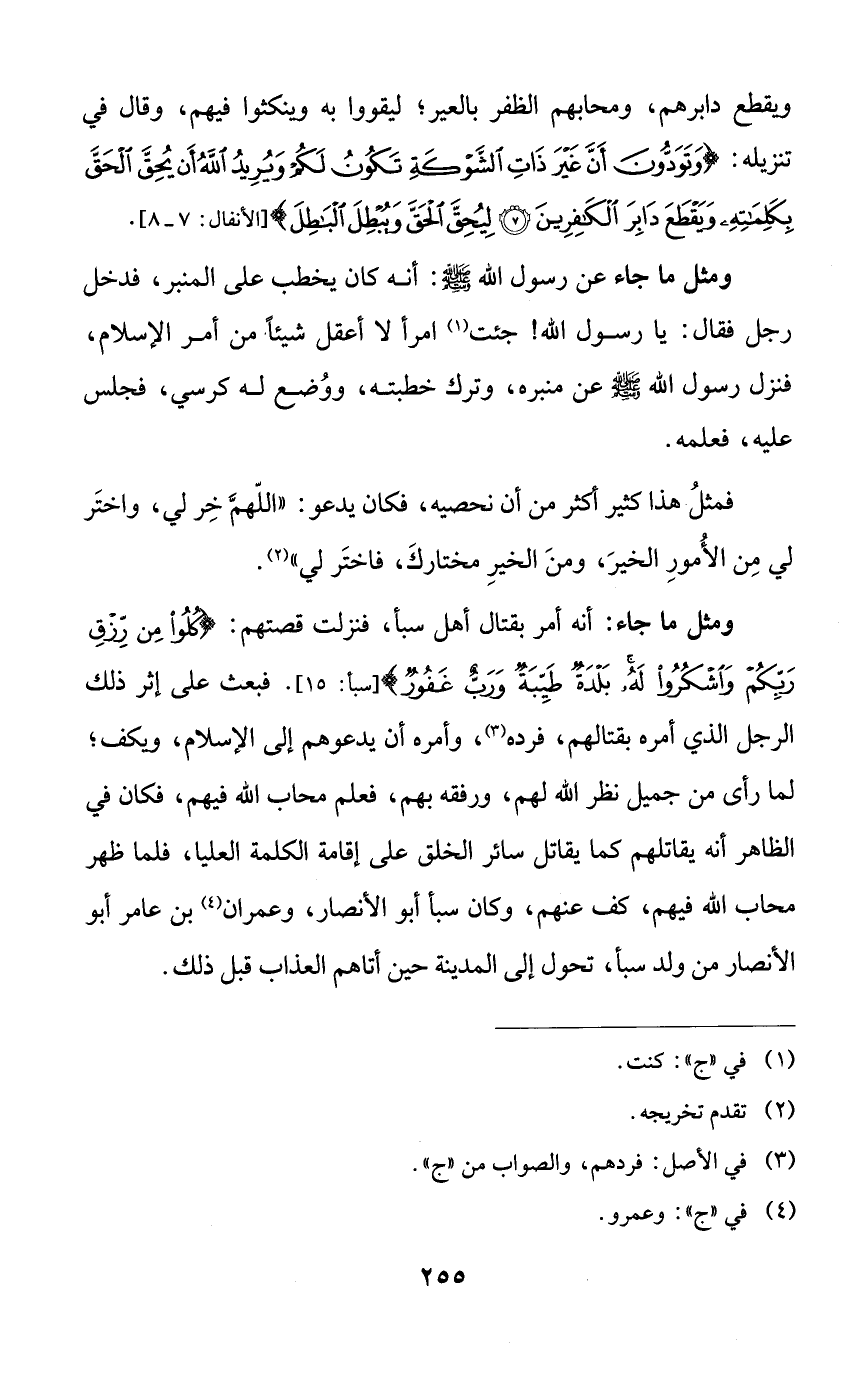 ويقطع دابرهم، ومحابهم الظفر بالعير؛ ليقووا به وينكثوا فيهم، وقال في
تنزيله: ﴿وَتَوَدُّونَ أَنَّ غَيْرَ ذَاتِ ٱلشَّوْكَةِ تَكُونُ لَكُمْ وَيُرِيدُ ٱللَّهُ أَن يُحِقَّ ٱلْحَقَّ
بِكَلِمَٰتِهِۦ وَيَقْطَعَ دَابِرَ ٱلْكَٰفِرِينَ ۝٧ لِيُحِقَّ ٱلْحَقَّ وَيُبْطِلَ ٱلْبَٰطِلَ﴾[الأنفال: ٧ ـ ٨].
ومثل ما جاء عن رسول الله ﷺ: أنه كان يخطب على المنبر، فدخل
رجل فقال: يا رسول الله! جئت(١) امرأ لا أعقل شيئاً من أمر الإسلام،
فنزل رسول الله ﷺ عن منبره، وترك خطبته، ووُضع له كرسي، فجلس
عليه، فعلمه.
فمثلُ هذا كثير أكثر من أن نحصيه، فكان يدعو: «اللّهمَّ خِر لي، واختَر
لي مِن الأُمورِ الخيرَ، ومنَ الخيرِ مختاركَ، فاختَر لي»(٢).
ومثل ما جاء: أنه أمر بقتال أهل سبأ، فنزلت قصتهم: ﴿كُلُوا۟ مِن رِّزْقِ
رَبِّكُمْ وَٱشْكُرُوا۟ لَهُۥ ۚ بَلْدَةٌ طَيِّبَةٌ وَرَبٌّ غَفُورٌ﴾[سبأ: ١٥]. فبعث على إثر ذلك
الرجل الذي أمره بقتالهم، فرده(٣)، وأمره أن يدعوهم إلى الإسلام، ويكف؛
لما رأى من جميل نظر الله لهم، ورفقه بهم، فعلم محاب الله فيهم، فكان في
الظاهر أنه يقاتلهم كما يقاتل سائر الخلق على إقامة الكلمة العليا، فلما ظهر
محاب الله فيهم، كف عنهم، وكان سبأ أبو الأنصار، وعمران(٤) بن عامر أبو
الأنصار من ولد سبأ، تحول إلى المدينة حين أتاهم العذاب قبل ذلك.
(١) في «ج»: كنت.
(٢) تقدم تخريجه.
(٣) في الأصل: فردهم، والصواب من «ج».
(٤) في «ج»: وعمرو.
٢٥٥